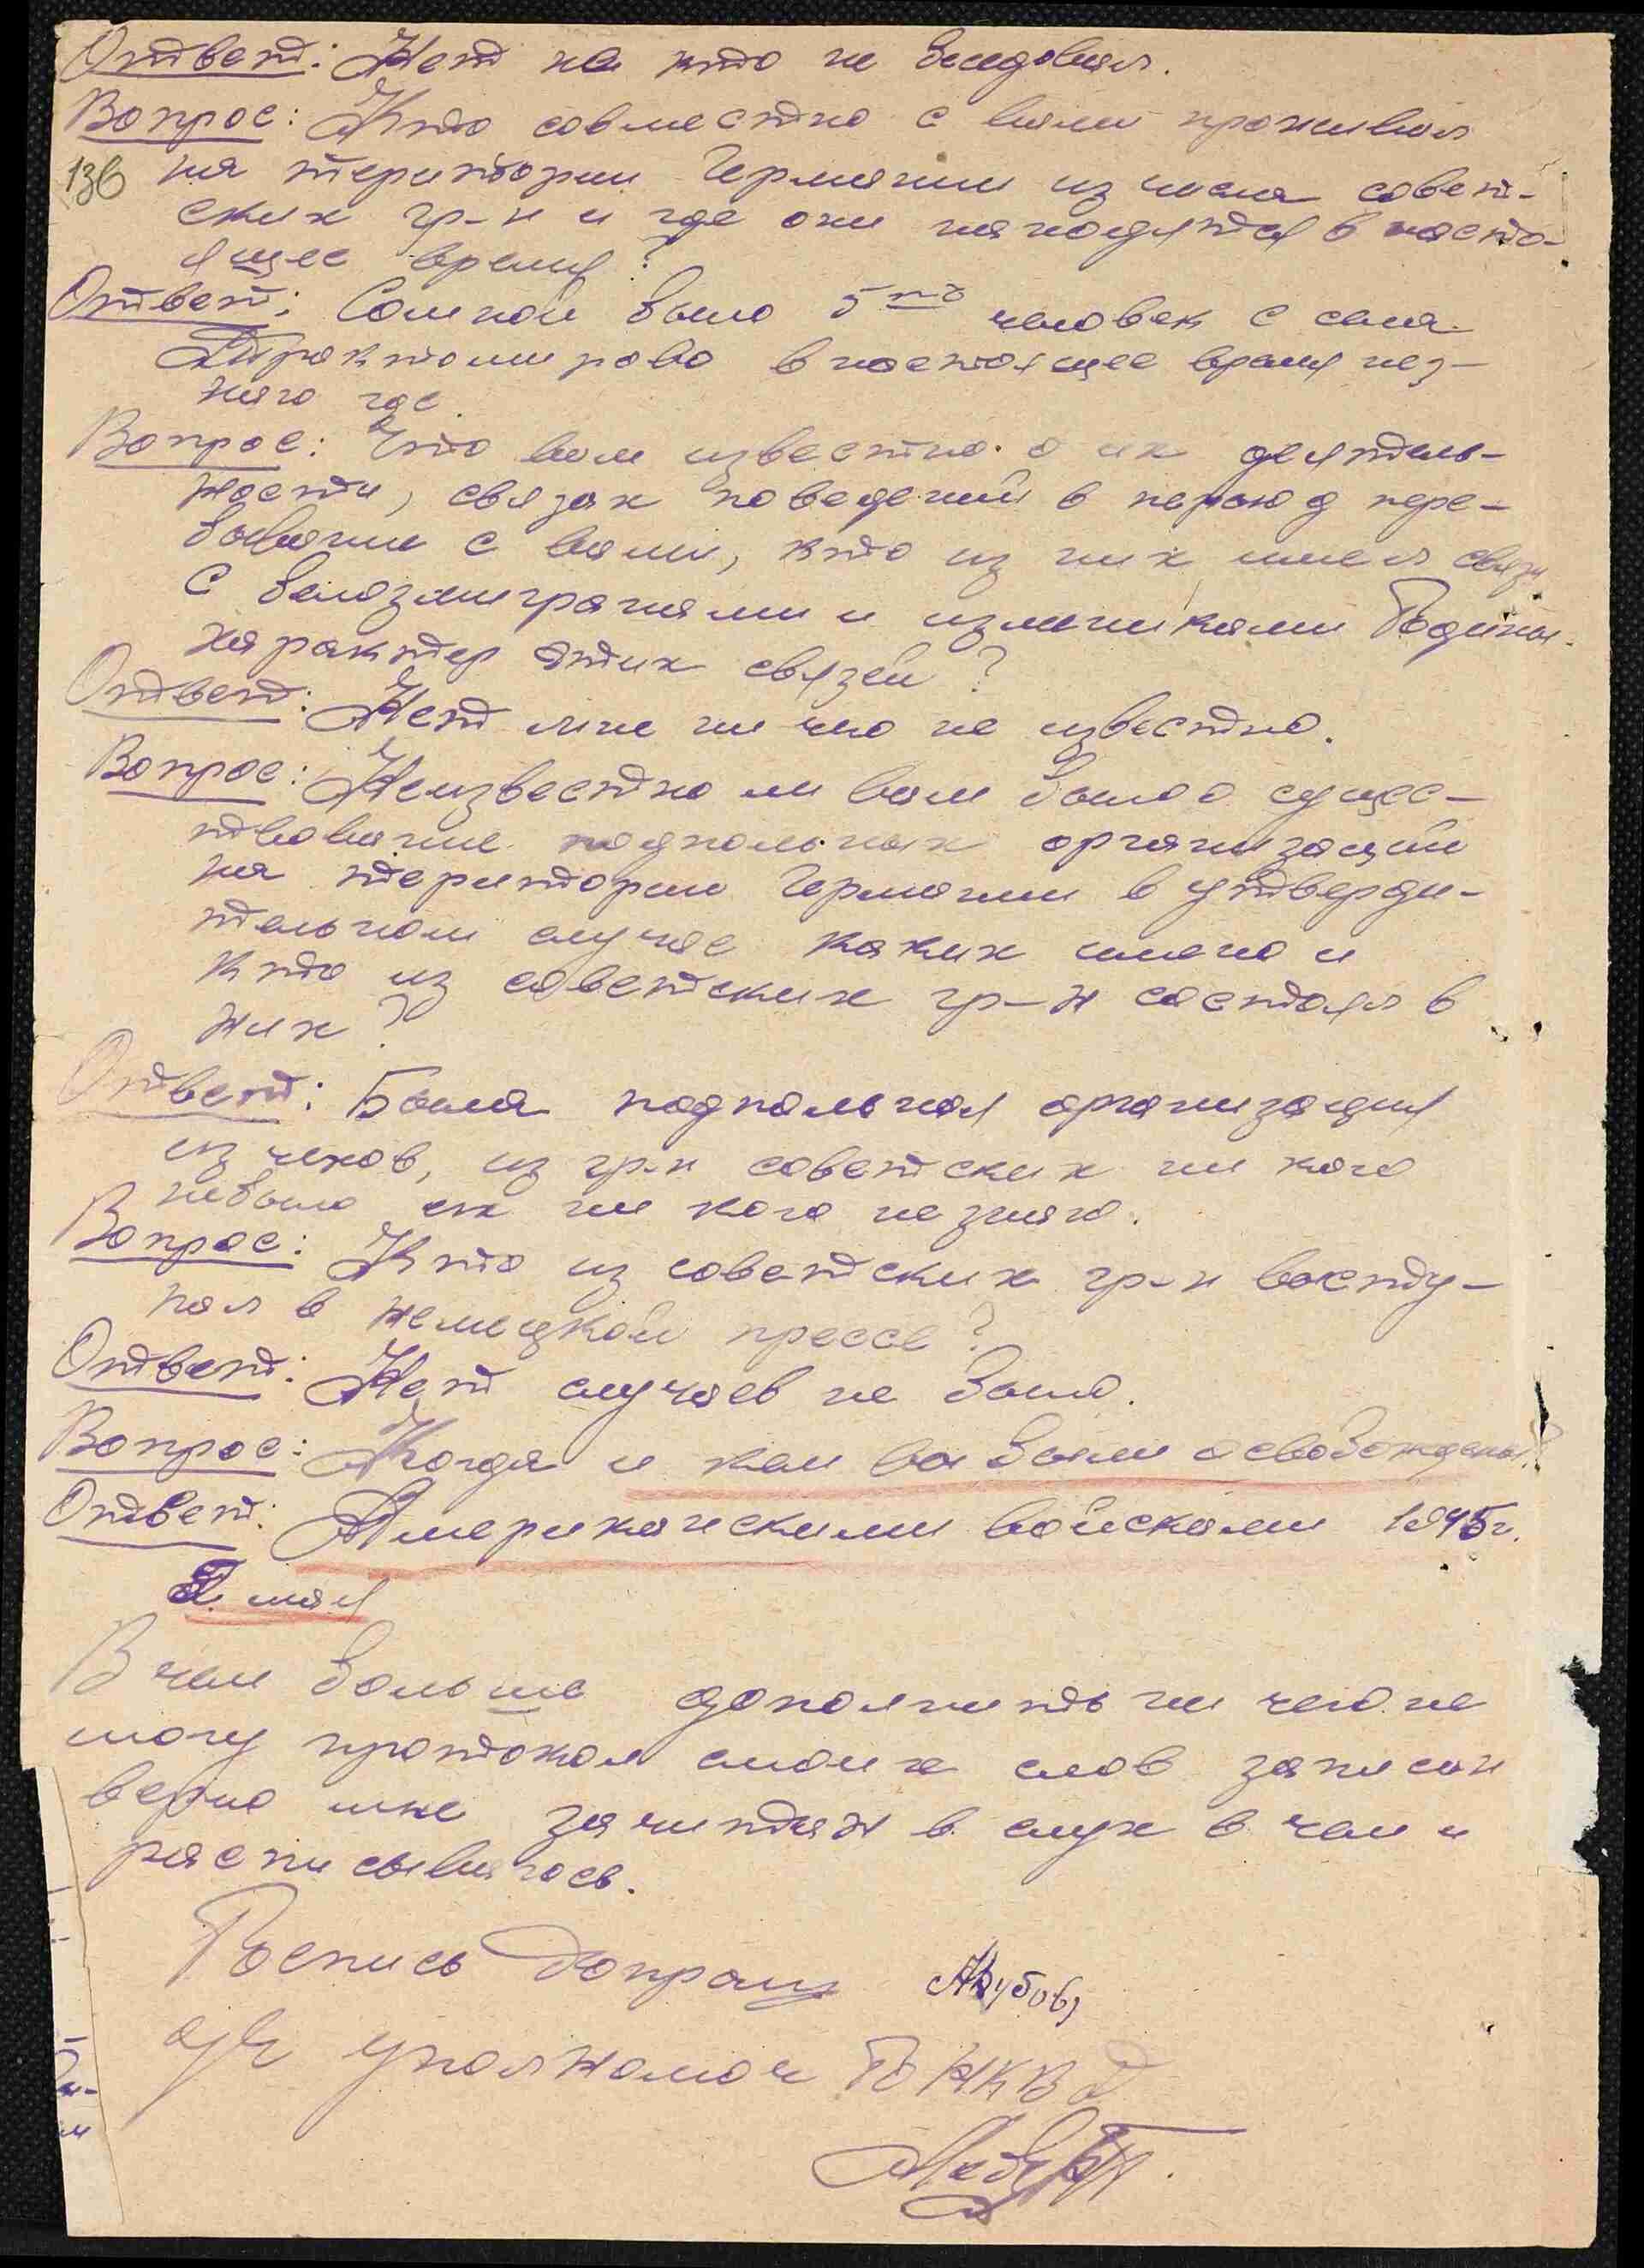 Ответ: Нет на кто не беседовал.
Вопрос: Кто совместно с вами проживал
13в на територии Германии из числа совет-
ских гр-н и где они находятся в насто-
ящее время?
Ответ: Сомной было 5ть человек с села
Трактомирово в настоящее время нез-
наю где.
Вопрос: Что вам известно о их деятель-
ности, связях поведений в период пре-
бывании с вами, кто из них имел связи
с белоэмигранями и измениками Родины.
характер этих связей?
Ответ: Нет мне ни чего не известно.
Вопрос: Неизвестно ли вам было о сущес-
твование подпольных организаций
на територии Германии в утверди-
тельном случае каких имено и
кто из советских гр-н состоял в
них?
Ответ: Была подпольная организация
из чехов, из гр-н советских ни кого
небыло их ни кого незнаю.
Вопрос: Кто из советских гр-н высту-
пал в немецкой прессе?
Ответ: Нет случаев не было.
Вопрос: Когда и кем вы были освобождены?
Ответ: Американскими войсками 1945г.
мая
В чем больше дополнить ни чего не
могу протокол смоих слов записан
верно мне зачитан в слух в чем и
расписываюсь.
Роспись допраш
уч уполномоч РО НКВД